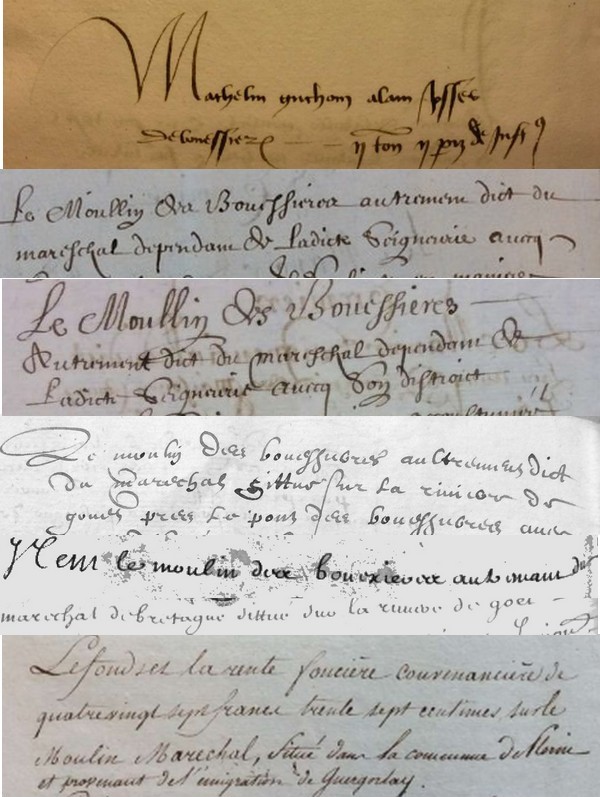 Mathelin guthom alain ysset
de bouessiere ij ton ij prz de Just
Le Moullin des Bouessieres autrement dict du
mareschal dependam de Ladicte Seigneurie aucq
Le Moullin des Bouessieres
Autrement dict du mareschal dependam de
Ladicte Seigneurie aucq Son distroict
Le moulin des bouessieres aultrement dict
du mareschal sittué sur la riviere de
gouet pres le pont des bouessieres avec
Item le moulin des bouexieres autremant du
marechal de bretagne sittué sur la riviere de goet
Le fond set la rente foncière convenancière de
quatrevingt sept francs trente sept centimes, sur le
Moulin Marechal, situé dans la commune de Plerin
et provenant de l'émigration de Guergorlay.